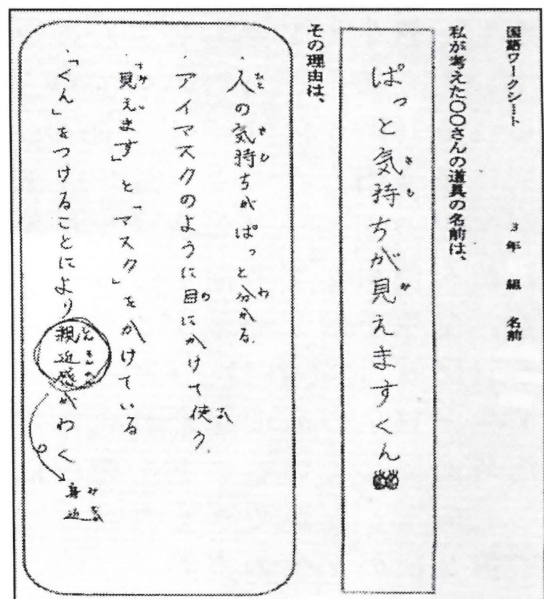 国語ワークシート　3年　組　名前
私が考えた〇〇さんの道具の名前は、
ぱっと気持ちが見えますくん
その理由は、
・人の気持ちがぱっと分かる。
・アイマスクのように目にかけて使う。
・「見えます」と「マスク」をかけている
・「くん」をつけることにより親近感がわく
身近